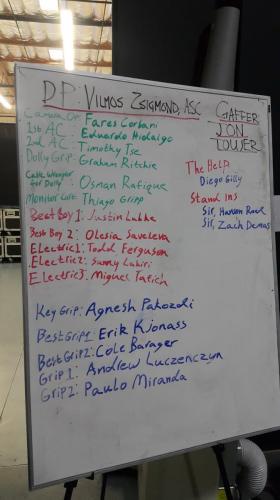 DP: VILMOS ZSIGMOND, ASC
Camera Op: Fares Corbani
1st AC: Eduardo Hidalgo
2nd AC: Timothy Tse
Dolly Grip: Graham Ritchie
Cable Wrangler for Dolly: Osman Rafique
Monitor Cart: Thiago Gripp
Best Boy 1: Justin Lubke
Best Boy 2: Olesia Saveleva
Electric 1: Todd Ferguson
Electric 2: Sunny Lahiri
Electric 3: Miguel
Key Grip: Agnesh Pakozdi
Best Grip 1: Erik Kjonass
Best Grip 2: Cole Barager
Grip 1: Andrew Luczenczyn
Grip 2: Paulo Miranda
GAFFER
JON
TOWER
The Help
Diego Gilly
Stand Ins
Sir, Hanson Rock
Sir, Zach Demas